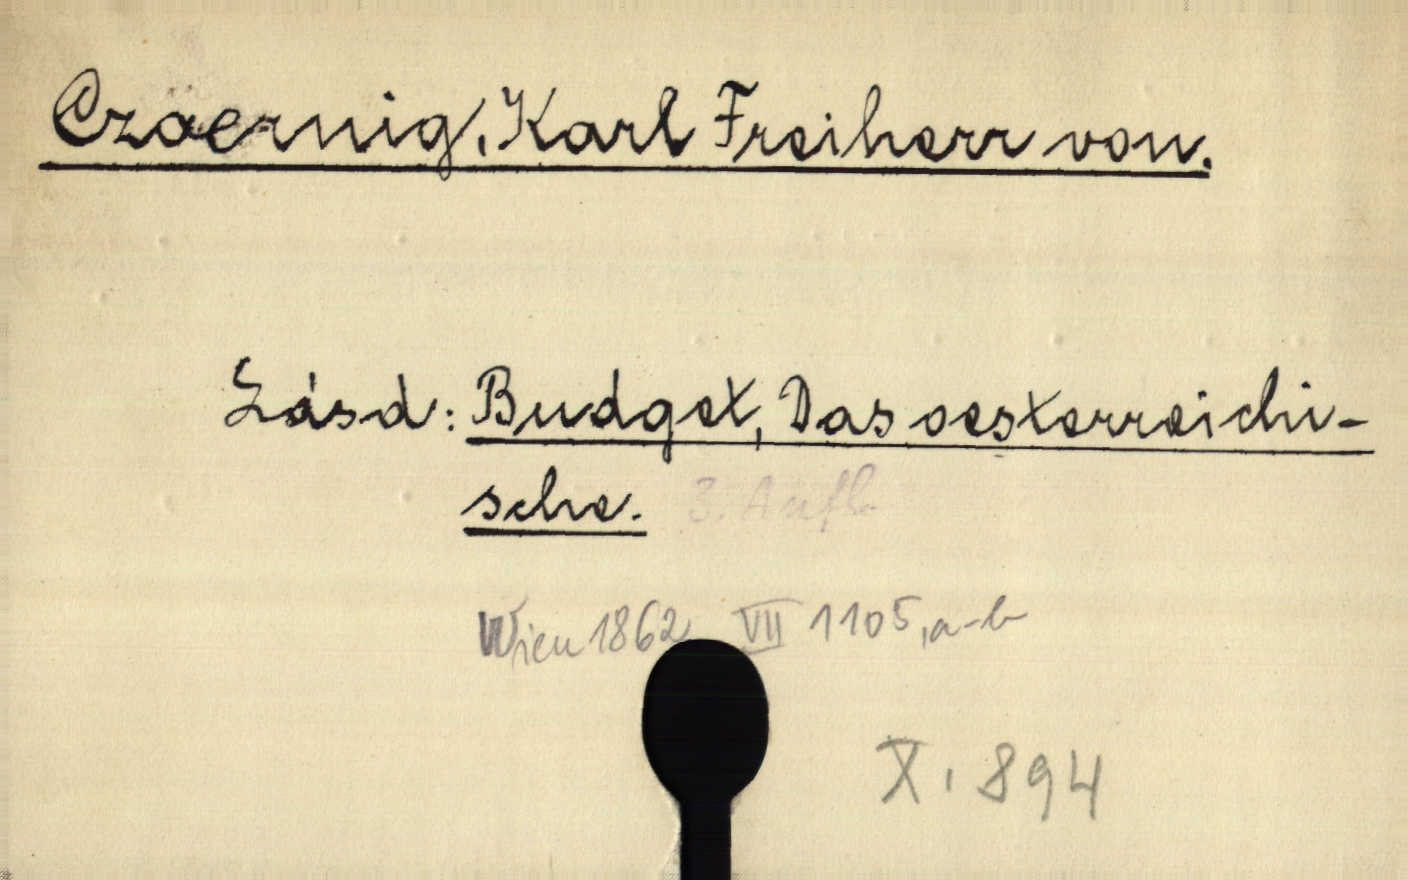 Czoernig, Karl Freiherr von.
Lásd: Budget, Das oesterreichi-
sche. 3. Aufl.
Wien 1862 VII 1105, a-b
X. 894